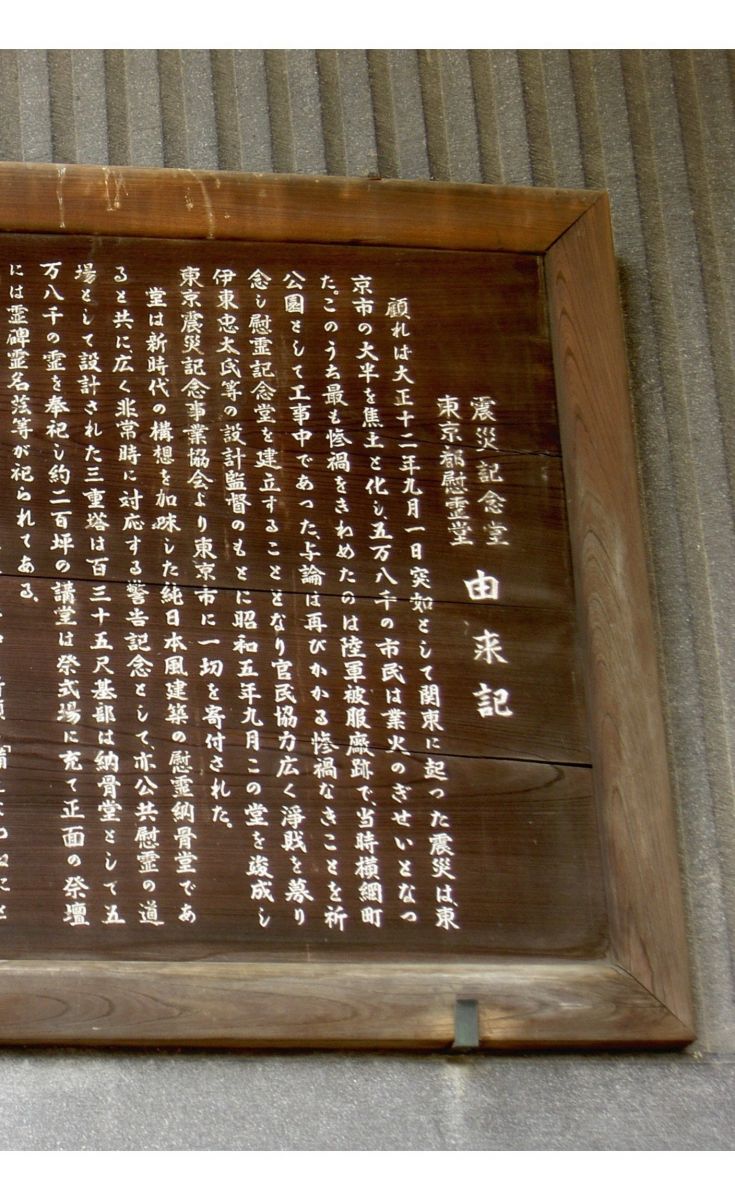 震災記念堂
東京都慰霊堂
由来記
顧れば大正十二年九月一日突如として関東に起った震災は、東
京市の大半を焦土と化し五万八千の市民は業火のぎせいとなっ
た。このうち最も惨禍をきわめたのは陸軍被服廠跡で、当時横網町
公園として工事中であった、与論は再びかかる惨禍なきことを祈
念し慰霊記念堂を建立することとなり官民協力広く浄財を募り
伊東忠太氏等の設計監督のもとに昭和五年九月この堂を竣成し
東京震災記念事業協会より東京市に一切を寄付された。
堂は新時代の構想を加味した純日本風建築の慰霊納骨堂であ
ると共に広く非常時に対応する警告記念として、亦公共慰霊の道
場として設計された三重塔は百三十五尺基部は納骨堂として五
万八千の霊を奉祀し約二百坪の講堂は祭式場に充て正面の祭壇
には霊碑霊名弦等が祀られてある、